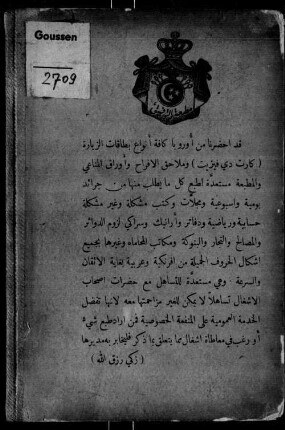 Goussen
2709
قد احضرنا من أوروبا كافة أنواع بطاقات الزيارة
(كارت دي فيزيت) وملاحق الافراح وأوراق المناعي
والمطبعة مستعدّة لطبع كل ما يطلب منها من جرائد
يومية واسبوعية ومجلّات وكتب مشكلة وغير مشكلة
حسابية ورياضية ودفاتر وأرانيك وسراكي لزوم الدوائر
والمصالح والتجار والبنوكة ومكاتب المحاماه وغيرها بجميع
اشكال الحروف الجميلة من افرنكية وعربية بغاية الاتقان
والسرعة وهي مستعدّة للتساهل مع حضرات اصحاب
الاشغال تساهلاً لا يمكن للغير مزاحمتها معه لانها تفضل
الخدمة العمومية على المنفعة الخصوصية فمن اراد طبع شيء
أو رغب في معاطاة اشغال مما يتعلق بما ذكر فليخابر به مديرها
(زكي رزق الله)